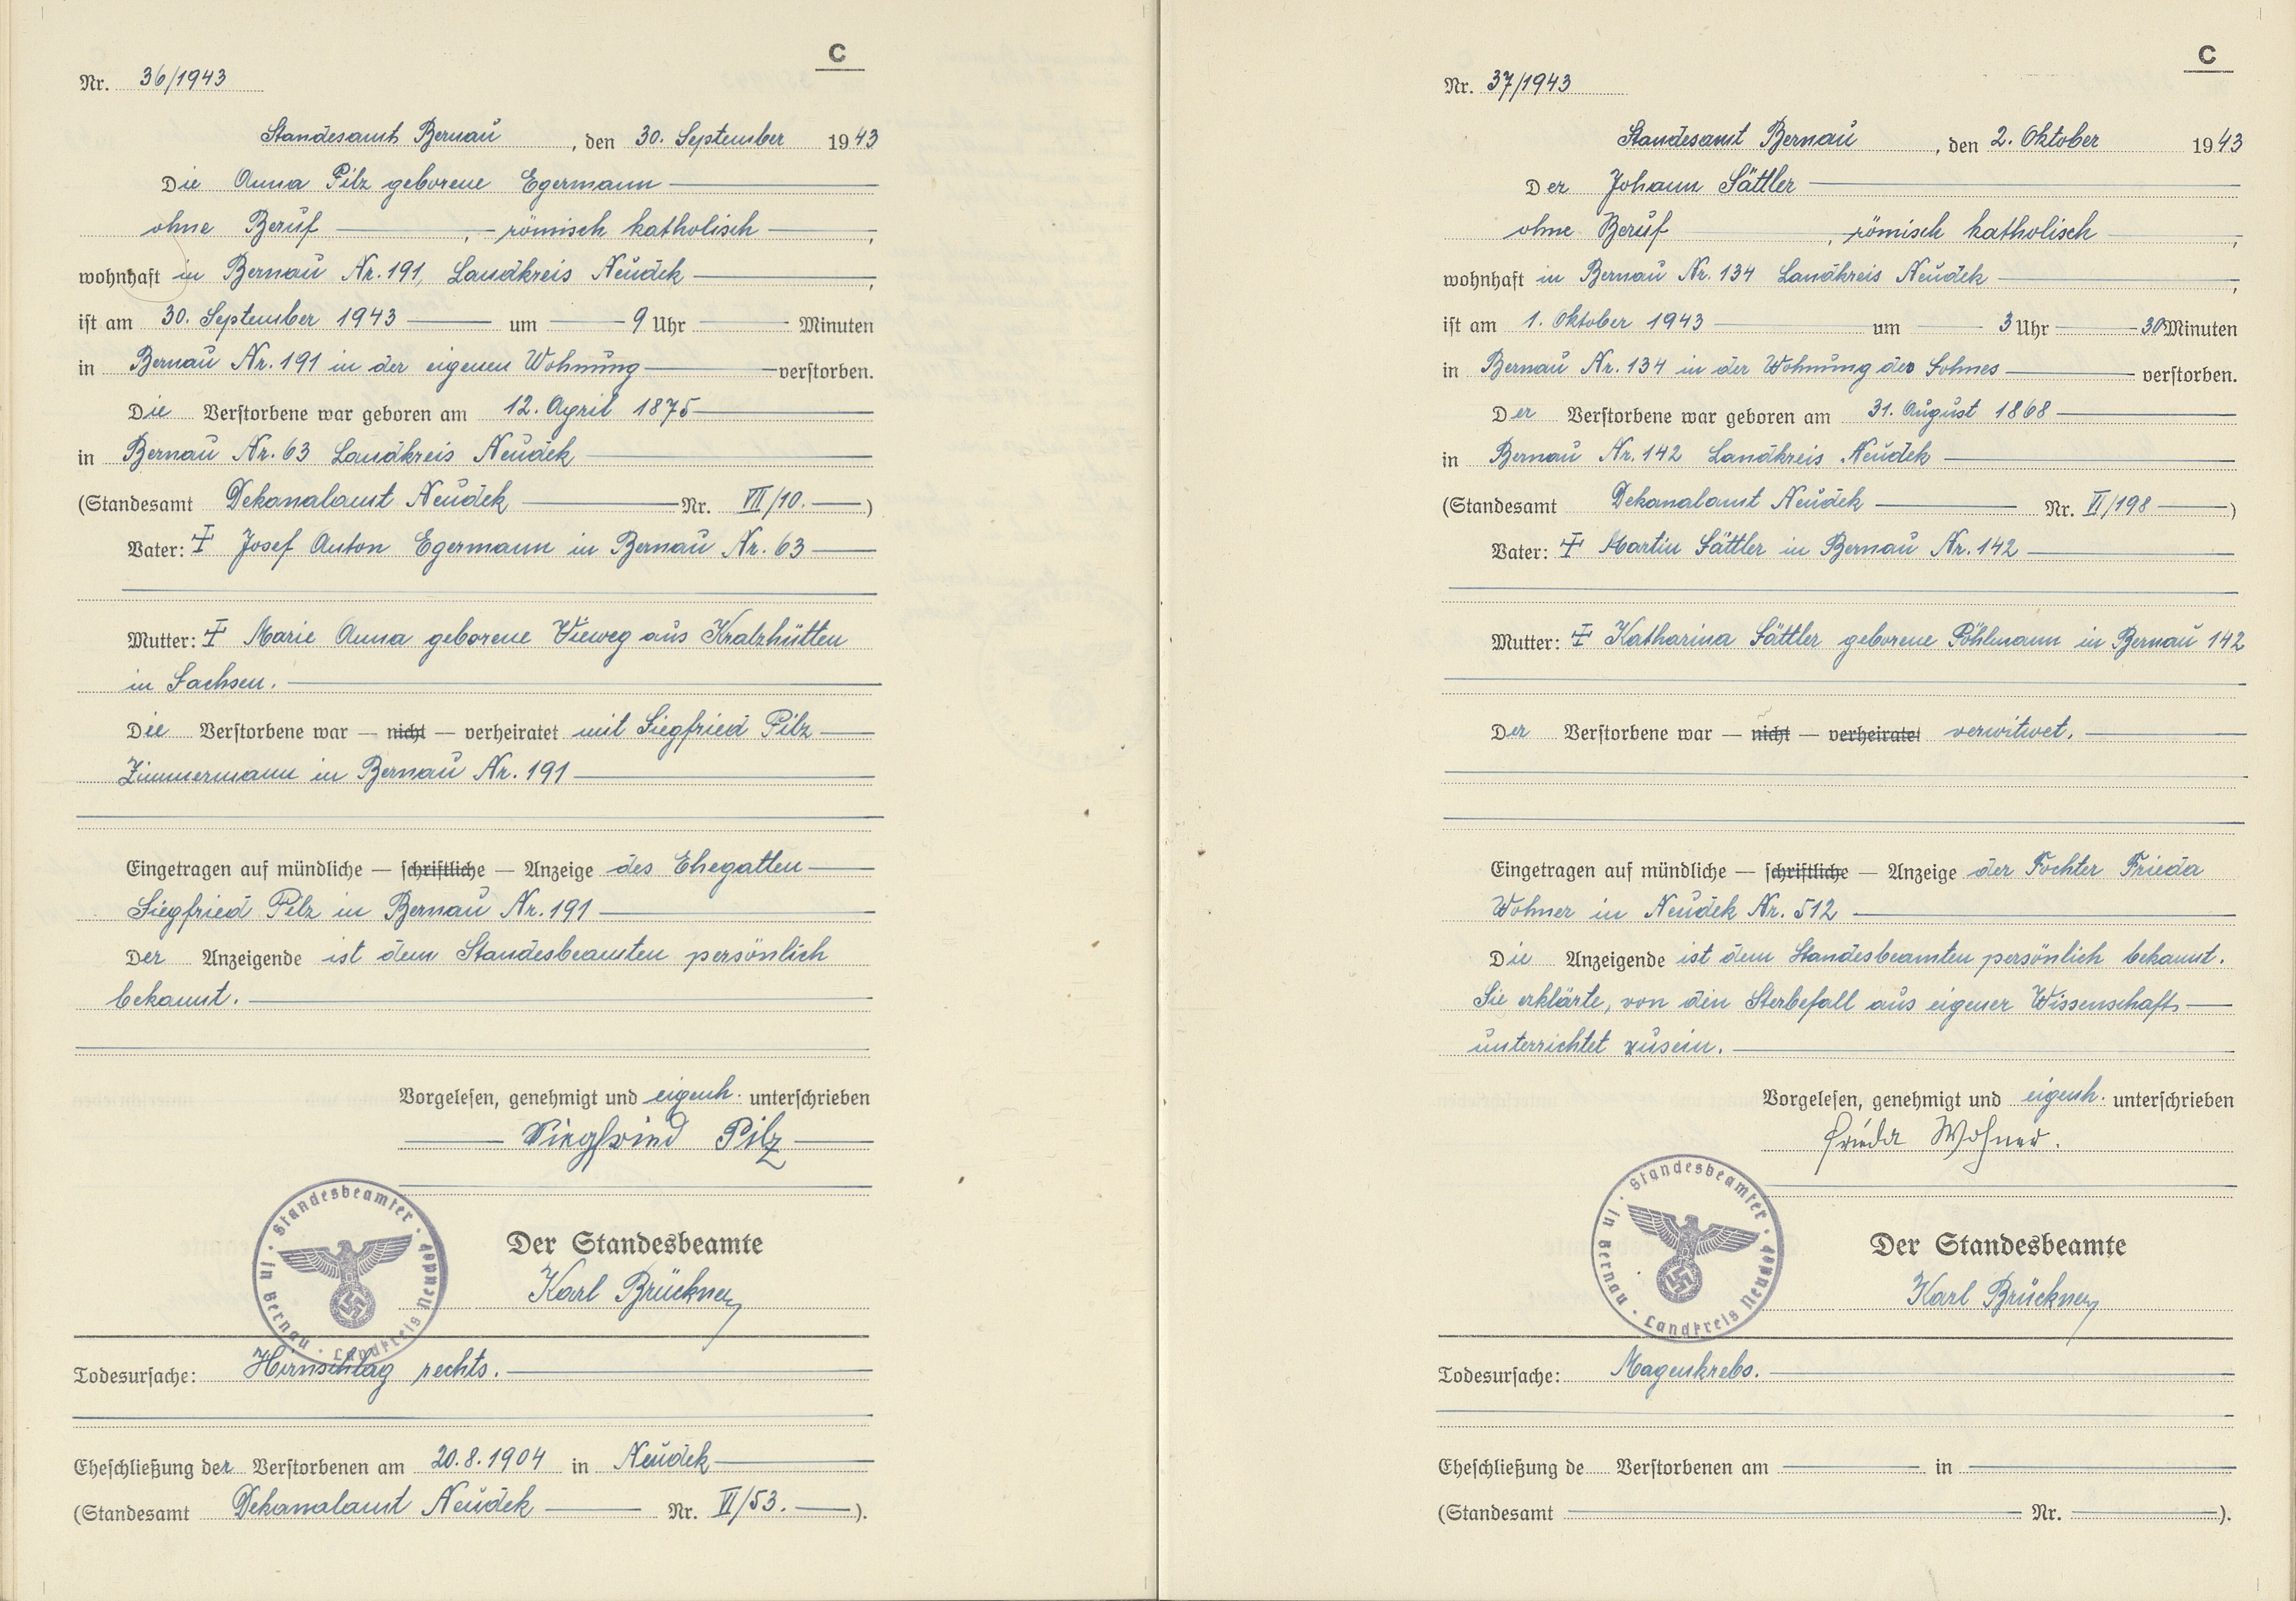 C
Nr. 36/1943
Standesamt Bernau, den 30. September 1943
Die Anna Pilz geborene Egermann
ohne Beruf, römisch katholisch,
wohnhaft in Bernau Nr. 191, Landkreis Neudek,
ist am 30. September 1943 um 9 Uhr Minuten
in Bernau Nr. 191 in der eigenen Wohnung verstorben.
Die Verstorbene war geboren am 12. April 1875
in Bernau Nr. 63 Landkreis Neudek
(Standesamt Dekanalamt Neudek Nr. VII/10.)
Vater: ‡ Josef Anton Egermann in Bernau Nr. 63
Mutter: ‡ Marie Anna geborene Vieweg aus
in Sachsen.
Die Verstorbene war — nicht — verheiratet mit Siegfried Pilz
Zimmermann in Bernau Nr. 191
Eingetragen auf mündliche — schriftliche — Anzeige des Ehegatten
Siegfried Pilz in Bernau Nr. 191
Der Anzeigende ist dem Standesbeamten persönlich
bekannt.
Vorgelesen, genehmigt und eigenh. unterschrieben
Siegfried Pilz
Standesbeamter · Landkreis Neudek · in Bernau
Der Standesbeamte
Karl Brückner
Todesursache: Hirnschlag rechts.
Eheschließung der Verstorbenen am 20.8.1904 in Neudek
(Standesamt Dekanalamt Neudek Nr. VI/53.).
C
Nr. 37/1943
Standesamt Bernau, den 2. Oktober 1943
Der Johann Sättler
ohne Beruf, römisch katholisch,
wohnhaft in Bernau Nr. 134 Landkreis Neudek,
ist am 1. Oktober 1943 um 3 Uhr 30 Minuten
in Bernau Nr. 134 in der Wohnung des Sohnes verstorben.
Der Verstorbene war geboren am 31. August 1868
in Bernau Nr. 142 Landkreis Neudek
(Standesamt Dekanalamt Neudek Nr. VI/198)
Vater: ‡ Martin Sättler in Bernau Nr. 142
Mutter: ‡ Katharina Sättler geborene Pöhlmann in Bernau 142
Der Verstorbene war — nicht — verheiratet verwitwet.
Eingetragen auf mündliche — schriftliche — Anzeige der Tochter Frieda
Wohner in Neudek Nr. 512
Die Anzeigende ist dem Standesbeamten persönlich bekannt.
Sie erklärte, von den Sterbefall aus eigener Wissenschaft
unterrichtet zusein.
Vorgelesen, genehmigt und eigenh. unterschrieben
Frieda Wohner.
Standesbeamter · Landkreis Neudek · in Bernau
Der Standesbeamte
Karl Brückner
Todesursache: Magenkrebs.
Eheschließung de Verstorbenen am in
(Standesamt Nr. ).